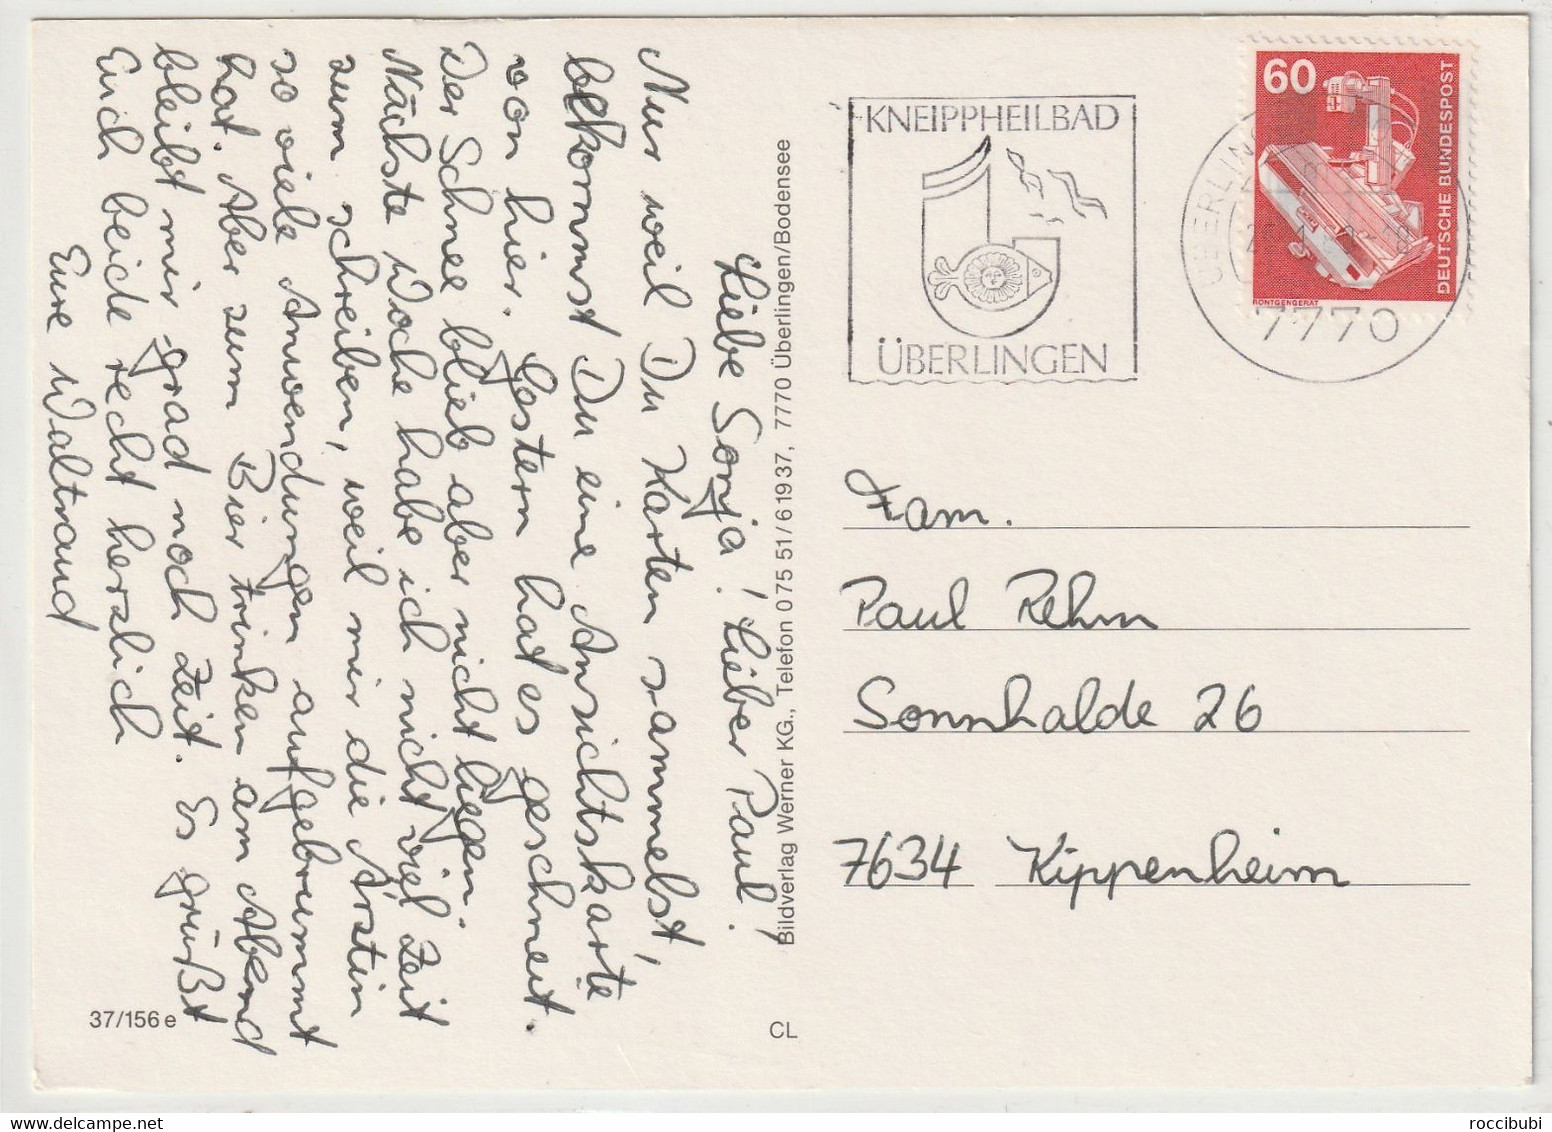 Liebe Sonja! Lieber Paul!
Nur weil Du Karten sammelst,
bekommst Du eine Ansichtskarte
von hier. Gestern hat es geschneit.
Der Schnee blieb aber nicht liegen.
Nächste Woche habe ich nicht viel Zeit
zum schreiben, weil mir die Ärztin
so viele Anwendungen aufgebrummt
hat. Aber zum Bier trinken am Abend
bleibt mir grad noch Zeit. Es grüßt
Euch beide recht herzlich
Eure Waltraud
37/156 e
Bildverlag Werner KG., Telefon 0 75 51/6 19 37, 7770 Überlingen/Bodensee
CL
KNEIPPHEILBAD
ÜBERLINGEN
60
DEUTSCHE BUNDESPOST
RÖNTGENGERÄT
7770
Fam.
Paul Rehm
Sonnhalde 26
7634 Kippenheim
roccibubi